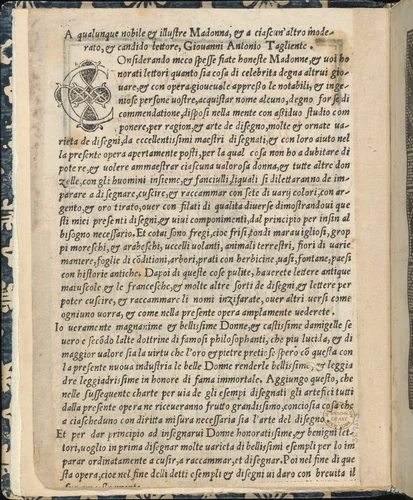 A qualunque nobile & illustre Madonna, & a ciascun'altro mode-
rato, & candido lettore, Giouanni Antonio Tagliente.
COnsiderando meco spesse fiate honeste Madonne, & uoi ho
norati lettori quanto sia cosa di celebrita degna altrui gio-
uare, & con opera gioueuole appresso le notabili, & inge-
niose persone uostre, acquistar nome alcuno, degno forse di
commendatione, disposi nella mente con assiduo studio com
ponere, per ragion, & arte de disegno, molte & ornate ua-
rieta de disegni, da eccellentissimi maestri disegnati, & con loro aiuto nel
la presente opera apertamente posti, per la qual cosa non ho a dubitare di
potere, & uolere ammaestrar ciascuna ualorosa donna, & tutte altre don
zelle, con gli huomini insieme, & fanciulli, liquali si dilettaranno de im-
parare a disegnare, cusire, & raccammar con sete di uarij colori, con ar-
gento, & oro tirato, ouer con filati di qualita diuerse dimostrandoui que
sti miei presenti disegni, & uiui componimenti, dal principio per insin al
bisogno necessario. Et cotai sono fregi, cioe frisi, tondi marauigliosi, grop
pi moreschi, & arabeschi, uccelli uolanti, animali terrestri, fiori di uarie
maniere, foglie di cōditioni, arbori, prati con herbicine, uasi, fontane, paesi
con historie antiche. Dapoi di queste cose pulite, hauerete lettere antique
maiuscole & le francesche, & molte altre sorti de disegni, & lettere per
poter cusire, & raccammare li nomi inzifarate, ouer altri uersi come
ogniuno uorra, & come nella presente opera amplamente uederete.
Io ueramente magnanime & bellissime Donne, & castissime damigelle se
uero e secōdo l'alte dottrine di famosi philosophanti, che piu lucida, & di
maggior ualore sia la uirtu che l'oro & pietre preti: se spero cō questa con
la presente nuoua industria le belle Donne renderle bellissime, & leggia
dre leggiadrissime in honore di fama immortale. Aggiungo questo, che
nelle sussequente charte per uia de gli esempi disegnati gli artefici tutti
dalla presente opera ne riceueranno frutto grandissimo, conciosia cosa che
a ciascheduno con diritta misura necessaria sia l'arte del disegno.
Et per dar principio ad insegnarui Donne honoratissime, & benigni let-
tori, uoglio in prima disegnar molte uarieta di bellissimi esempli per lo im
parar ordinatamente a cusir, a raccammar, et disegnar. Poi nel fine di que
sta opera, cioe nel fine delli detti esempli & disegni ui daro con breuita il